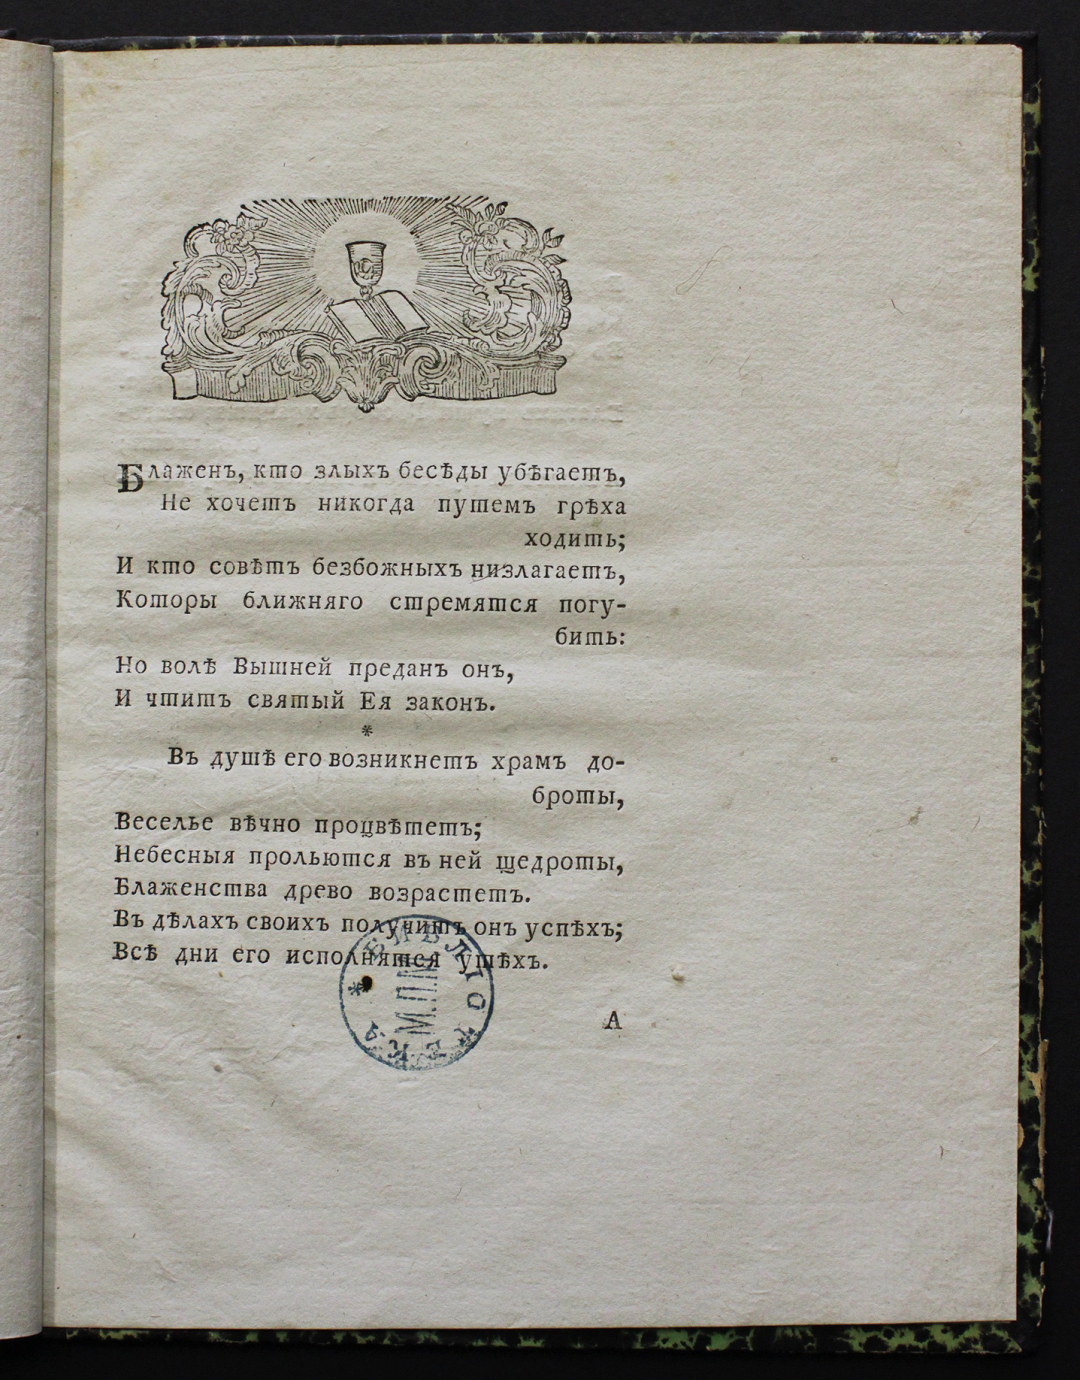 Блаженъ, кто злыхъ бесѣды убѣгаетъ,
Не хочетъ никогда путемъ грѣха
ходить;
И кто совѣтъ безбожныхъ низлагаетъ,
Которы ближняго стремятся погу-
бить:
Но волѣ Вышней преданъ онъ,
И чтитъ святый Ея законъ.
*
Въ душѣ его возникнетъ храмъ до-
броты,
Веселье вѣчно процвѣтетъ;
Небесныя прольются въ ней щедроты,
Блаженства древо возрастетъ.
Въ дѣлахъ своихъ получитъ онъ успѣхъ;
Всѣ дни его исполнятся утѣхъ.
А
* БИБЛІОТЕКА
М.П.М